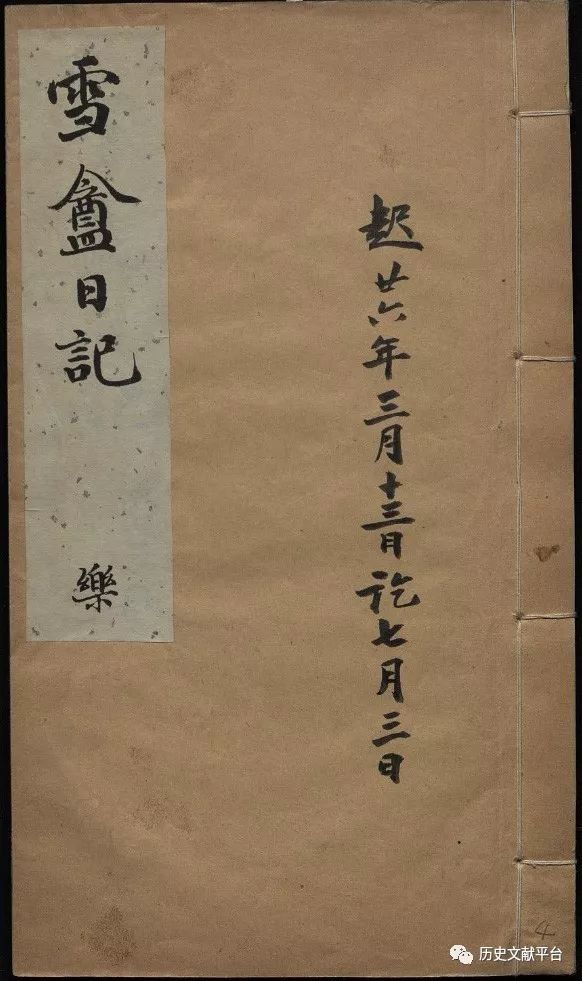 雪盦日記
樂
起廿六年三月十三日訖七月三日
4
历史文献平台